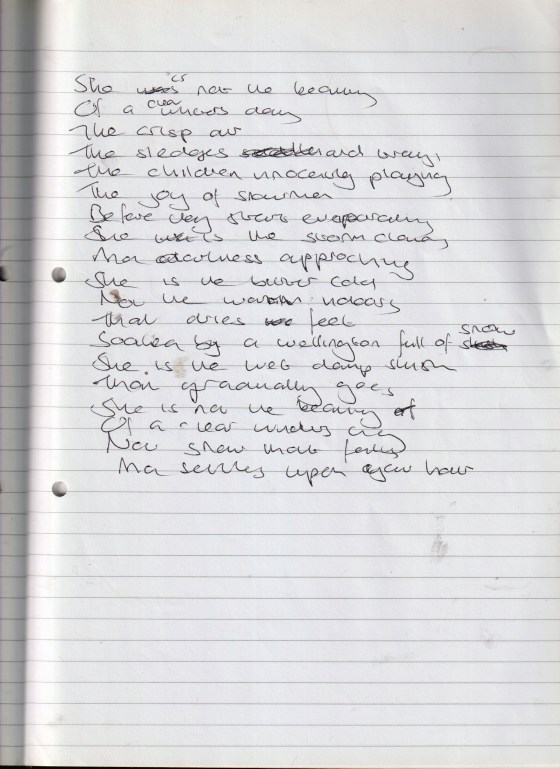 She is not the beauty
Of a clear winters day
The crisp air
The sledges and
The children innocently playing
The joy of snowmen
Before they start evaporating
She is the storm clouds
That darkness approching
She is the bitter cold
Not the warm indoors
That dries feet
Soaked by a wellington full of snow
She is the wet damp slush
That gradually goes
She is not the beauty
Of a clear winters day
Nor snow that falls
That settles upon your